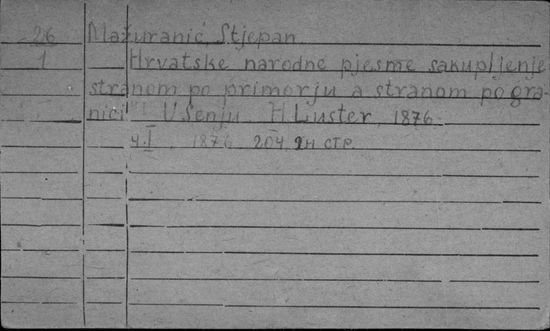 26 Mažuranić, Stjepan
1 Hrvatske narodne pjesme sakupljenje
stranom po primorju a stranom po gra-
nici U Senju. H Luster, 1876.
ч. I. 1876. 204, 2н стр.